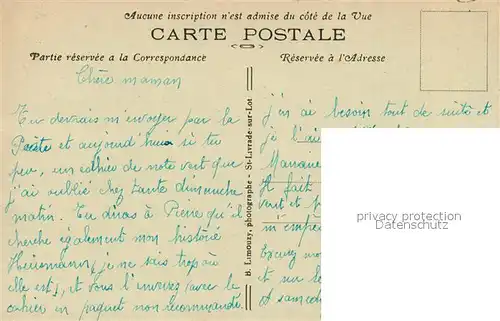 Aucune inscription n'est admise du côté de la Vue
CARTE POSTALE
Partie réservée a la Correspondance
Réservée à l'Adresse
Chère maman
Tu devrais m'envoyer par la
Poste et aujourd'hui si tu
peux, un cahier de note vert que
j'ai oublié chez tante dimanche
matin. Tu diras à Pierre qu'il
cherche également mon
je ne sais trop où
elle est, et vous l'enverrez avec le
cahier en paquet non recommandé.
B. Limouzy, photographe - St-Livrade-sur-Lot
j'en ai besoin tout de suite et
je l'ai
Il fait
vent et
m'empêc
Excuse mo
et sur le
A samedi
privacy protection
www.ansichtskarten-center.de